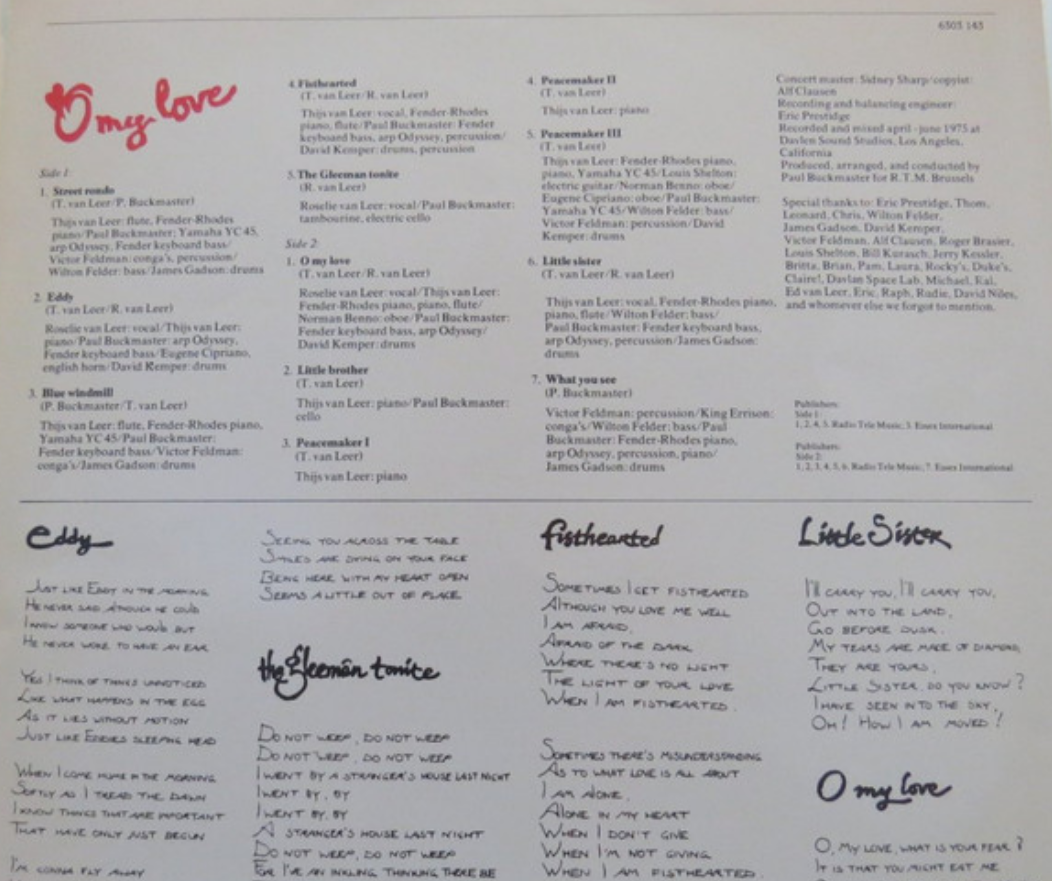 6303 145
O my love
Side 1:
1. Street rondo
(T. van Leer/P. Buckmaster)
Thijs van Leer: flute, Fender-Rhodes
piano/Paul Buckmaster; Yamaha YC 45,
arp Odyssey, Fender keyboard bass/
Victor Feldman: conga's, percussion/
Wilton Felder: bass/James Gadson: drums
2. Eddy
(T. van Leer/R. van Leer)
Roselie van Leer: vocal/Thijs van Leer:
piano/Paul Buckmaster: arp Odyssey,
Fender keyboard bass/Eugene Cipriano,
english horn/David Kemper: drums
3. Blue windmill
(P. Buckmaster/T. van Leer)
Thijs van Leer: flute, Fender-Rhodes piano,
Yamaha YC 45/Paul Buckmaster:
Fender keyboard bass/Victor Feldman:
conga's/James Gadson: drums
4. Fisthearted
(T. van Leer/R. van Leer)
Thijs van Leer: vocal, Fender-Rhodes
piano, flute/Paul Buckmaster: Fender
keyboard bass, arp Odyssey, percussion/
David Kemper: drums, percussion
5. The Gleeman tonite
(R. van Leer)
Roselie van Leer: vocal/Paul Buckmaster:
tambourine, electric cello
Side 2:
1. O my love
(T. van Leer/R. van Leer)
Roselie van Leer: vocal/Thijs van Leer:
Fender-Rhodes piano, piano, flute/
Norman Benno: oboe/Paul Buckmaster:
Fender keyboard bass, arp Odyssey/
David Kemper: drums
2. Little brother
(T. van Leer)
Thijs van Leer: piano/Paul Buckmaster:
cello
3. Peacemaker I
(T. van Leer)
Thijs van Leer: piano
4. Peacemaker II
(T. van Leer)
Thijs van Leer: piano
5. Peacemaker III
(T. van Leer)
Thijs van Leer: Fender-Rhodes piano,
piano, Yamaha YC 45/Louis Shelton:
electric guitar/Norman Benno: oboe/
Eugene Cipriano: oboe/Paul Buckmaster:
Yamaha YC 45/Wilton Felder: bass/
Victor Feldman: percussion/David
Kemper: drums
6. Little sister
(T. van Leer/R. van Leer)
Thijs van Leer: vocal, Fender-Rhodes piano,
piano, flute/Wilton Felder: bass/
Paul Buckmaster: Fender keyboard bass,
arp Odyssey, percussion/James Gadson:
drums
7. What you see
(P. Buckmaster)
Victor Feldman: percussion/King Errison:
conga's/Wilton Felder: bass/Paul
Buckmaster: Fender-Rhodes piano,
arp Odyssey, percussion, piano/
James Gadson: drums
Concert master: Sidney Sharp/copyist:
Alf Clausen
Recording and balancing engineer:
Eric Prestidge
Recorded and mixed april - june 1975 at
Davlen Sound Studios, Los Angeles,
California
Produced, arranged, and conducted by
Paul Buckmaster for R.T.M. Brussels
Special thanks to: Eric Prestidge, Thom,
Leonard, Chris, Wilton Felder,
James Gadson, David Kemper,
Victor Feldman, Alf Clausen, Roger Brasier,
Louis Shelton, Bill Kurasch, Jerry Kessler,
Britta, Brian, Pam, Laura, Rocky's, Duke's,
Claire!, Davlan Space Lab, Michael, Kal,
Ed van Leer, Eric, Raph, Rudie, David Niles,
and whomever else we forgot to mention.
Publishers:
Side 1:
1, 2, 4, 5. Radio Tele Music, 3. Essex International
Publishers:
Side 2:
1, 2, 3, 4, 5, 6. Radio Tele Music, 7. Essex International
Eddy
Just like Eddy in the morning
He never said although he could
I know someone who would but
He never woke to have an ear
Yes I think of things unnoticed
Like what happens in the egg
As it lies without motion
Just like Eddies sleeping head
When I come home in the morning
Softly as I tread the dawn
I know things that are important
That have only just begun
I'm gonna fly away
Seeing you across the table
Smiles are dying on your face
Being here with my heart open
Seems a little out of place
the Gleeman tonite
Do not weep, do not weep
Do not weep, do not weep
I went by a stranger's house last night
I went by, by
I went by, by
A stranger's house last night
Do not weep, do not weep
For I've an inkling thinking there be
fisthearted
Sometimes I get fisthearted
Although you love me well
I am afraid,
Afraid of the dark
Where there's no light
The light of your love
When I am fisthearted.
Sometimes there's misunderstanding
As to what love is all about
I am alone,
Alone in my heart
When I don't give
When I'm not giving
When I am fisthearted.
Little Sister
I'll carry you, I'll carry you,
Out into the land,
Go before dusk.
My tears are made of diamond,
They are yours,
Little Sister, do you know?
I have seen into the sky,
Oh! How I am moved!
O my love
O, my love, what is your fear?
It is that you might eat me